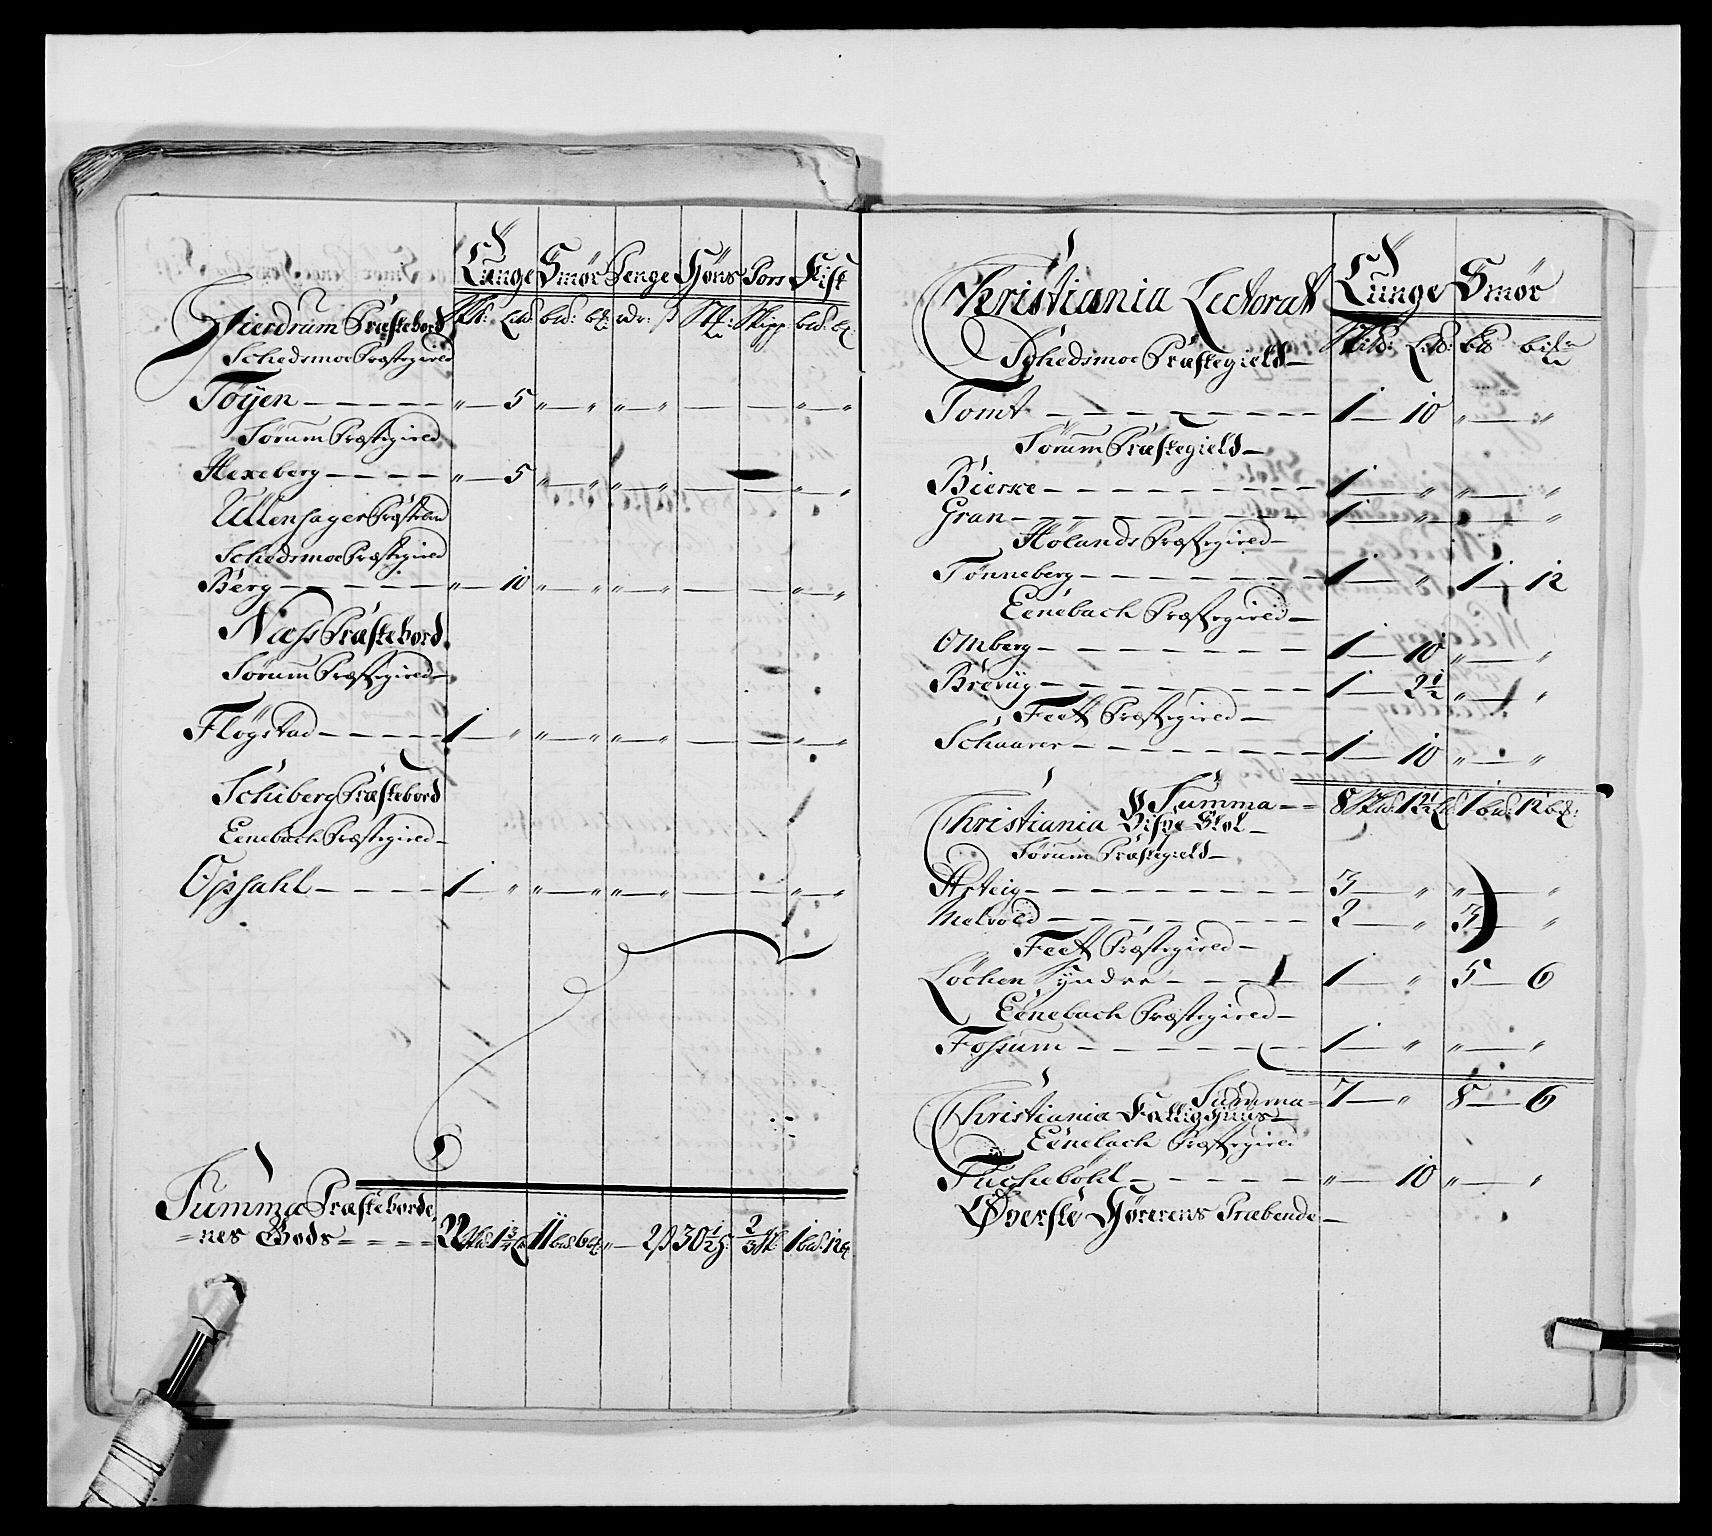 Tunge Smør Penge Høns Tors Fisk
Gierdrum Præstebord
Schedsmoe Præstegield
Tøyen 5
Sørum Præstegield
Hexeberg 5
Ullensager Præstebord
Schedsmoe Præstegield
Berg 10
Næss Præstebord
Sørum Præstegield
Fløgstad 1
Schiberg Præstebord
Eenebach Præstegield
Opsahl 1
Summa Præsteborde,
=nes Gods
Christiania Lectorat Tunge Smør
Schedsmoe Præstegield
Tomt 1 10
Sørum Præstegield
Bierke 1
Gran 1
Hølands Præstegield
Tønneberg 1 1 12
Eenebach Præstegield
Omberg 1 10
Brevig 1 2½
Feet Præstegield
Schaarer 1 10
Summa
Christiania Bispe Stol
Sørum Præstegield
Asteig 3
Melvold 2 3
Feet Præstegield
Løchen Syndre 1 5 6
Eenebach Præstegield
Fossum 1
Summa 7 8 6
Christiania Fattighuus
Eenebach Præstegield
Tuchebøhl 10
Øverste Hørerens Præbende